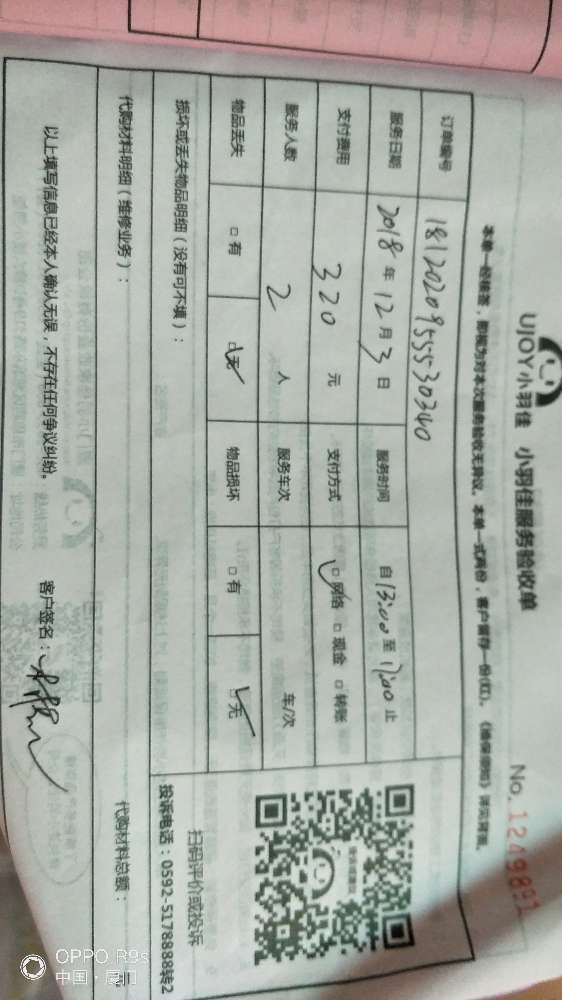 UJOY小羽佳 小羽佳服务验收单
No. 1249891
本单一经核签，即视为对本次服务验收无异议。本单一式两份，客户留存一份(红)。《维保须知》详见背面。
订单编号 1812020955530340
服务日期 2018年12月3日 服务时间 自13:00至17:00止
支付费用 320元 支付方式 □网络 □现金 □转账
服务人数 2人 服务车次 车/次
物品丢失 □有 □无 物品损坏 □有 □无
损坏或丢失物品明细（没有可不填）：
扫码评价或投诉
投诉电话：0592-5178888转2
代购材料明细（维修业务）：
代购材料总额：
以上填写信息已经本人确认无误，不存在任何争议纠纷。
客户签名：
OPPO R9s
中国·厦门